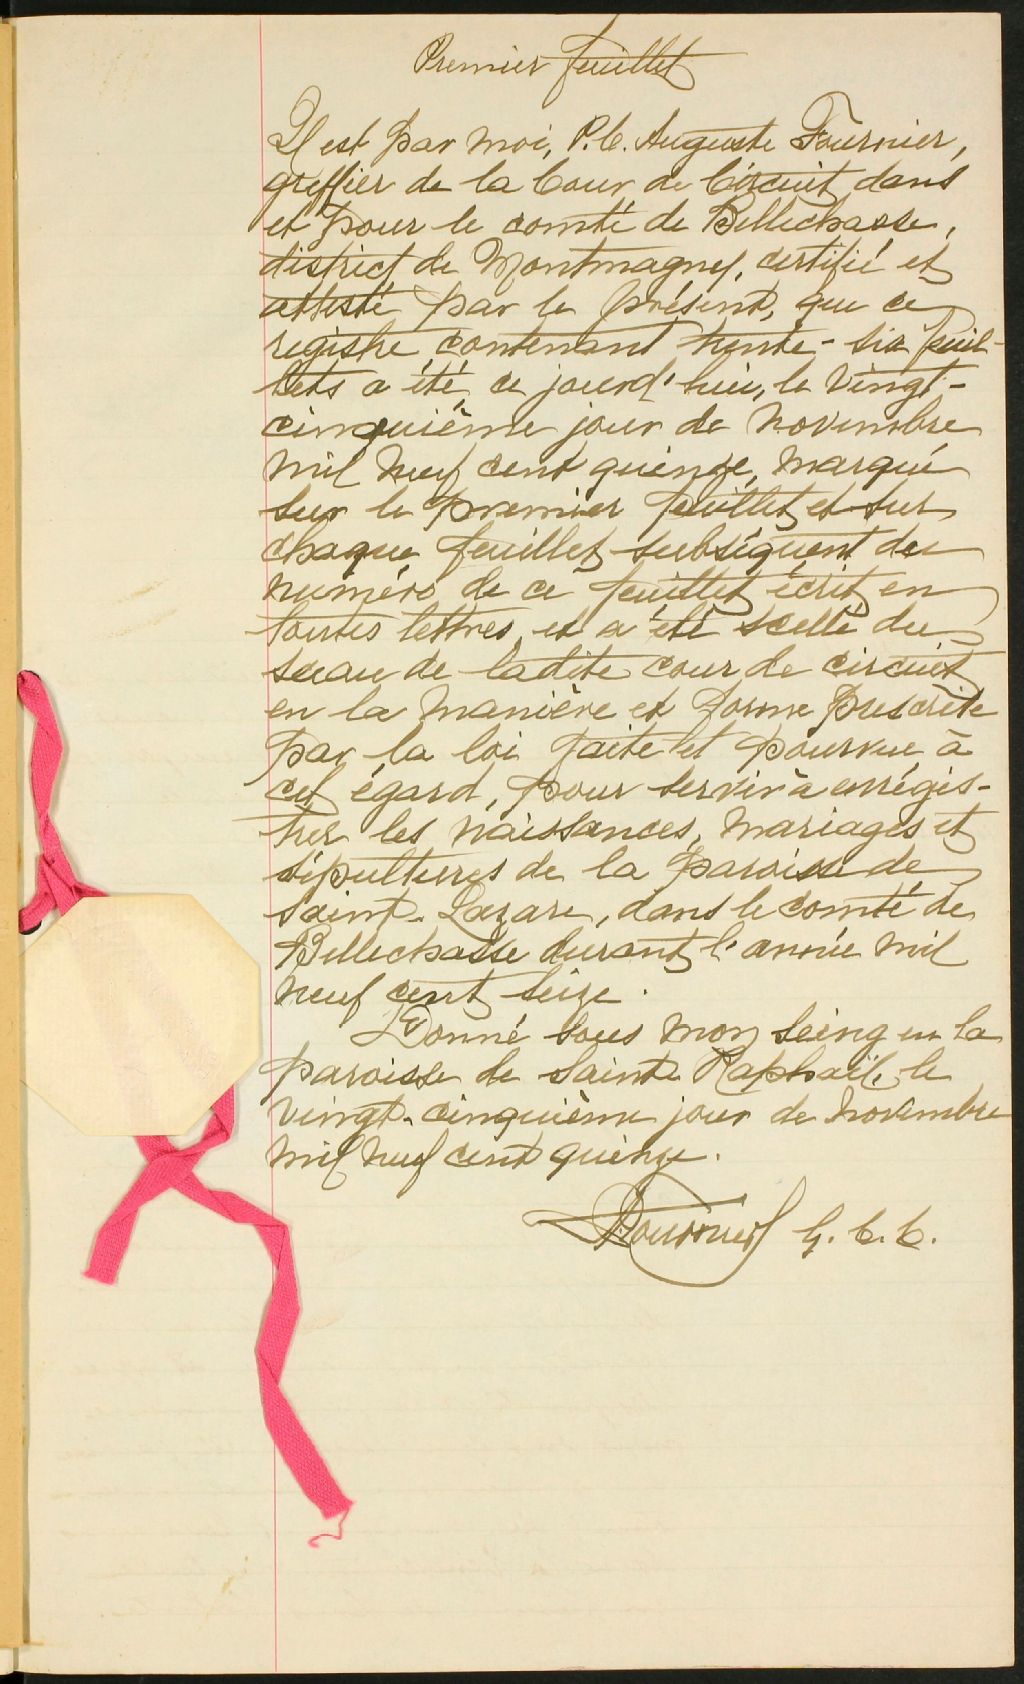 Premier feuillet
Il est par moi, P.C. Auguste Fournier,
greffier de la Cour de Circuit dans
et pour le comté de Bellechasse,
district de Montmagny, certifié et
attesté par le présent, que ce
registre contenant trente-six feuil-
lets a été, ce jourd'hui, le vingt-
cinquième jour de novembre
mil neuf cent quinze, marqué
sur le premier feuillet et sur
chaque feuillet subséquent du
numéro de ce feuillet écrit en
toutes lettres et a été scellé du
sceau de ladite cour de circuit
en la manière et forme prescrite
par la loi faite et pourvue à
cet égard, pour servir à enrégis-
trer les naissances, mariages et
sépultures de la paroisse de
Saint-Lazare, dans le comté de
Bellechasse durant l'année mil
neuf cent seize.
Donné sous mon seing en la
paroisse de Sainte Raphaël, le
vingt-cinquième jour de novembre
mil neuf cent quinze.
Fournier G.C.C.